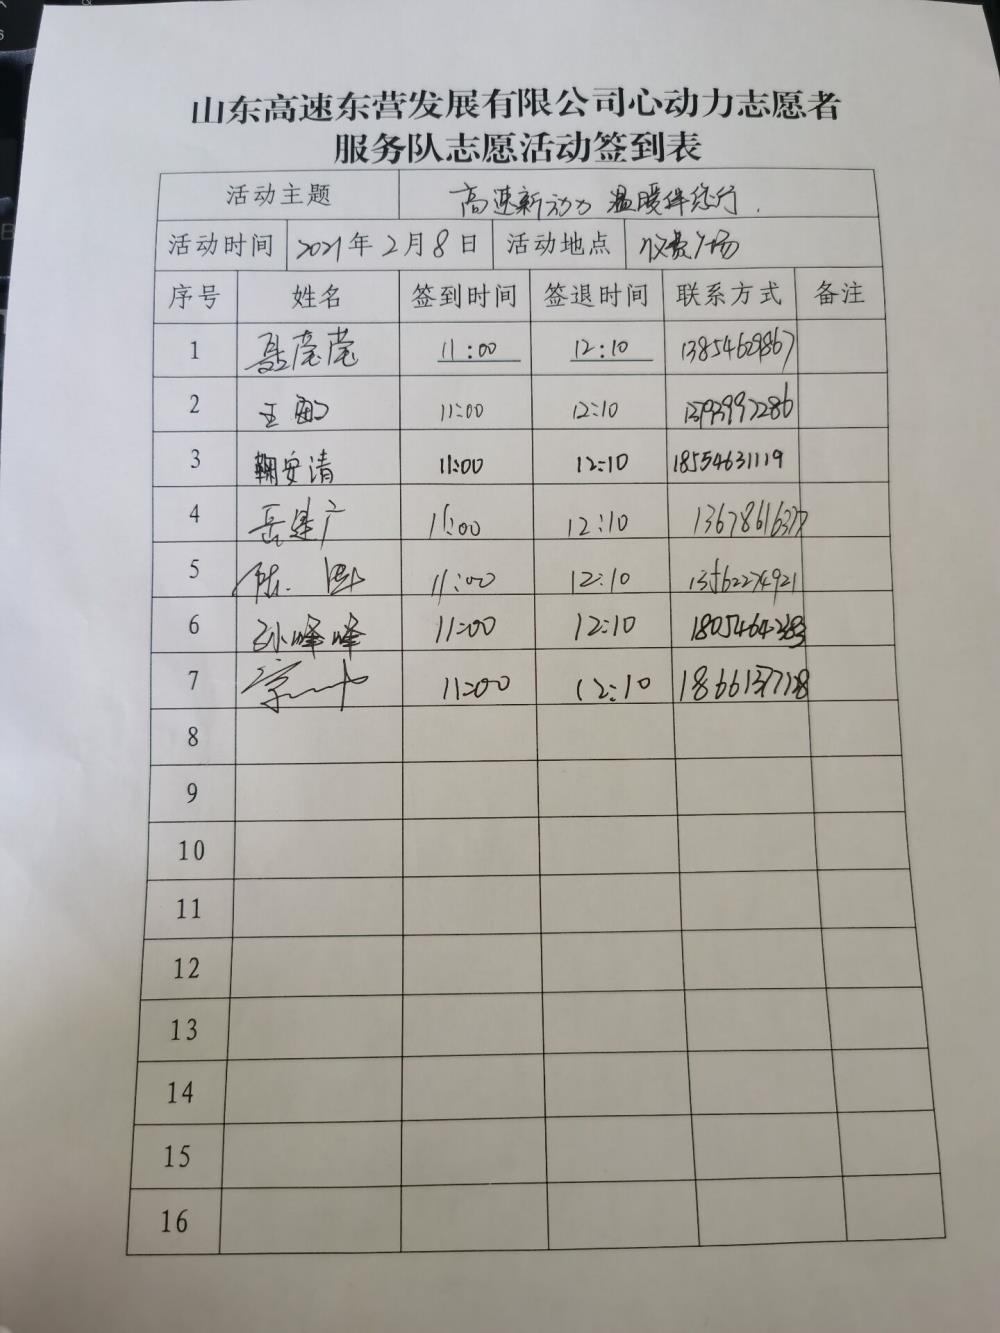 山东高速东营发展有限公司心动力志愿者
服务队志愿活动签到表
活动主题 高速新动力 温暖伴您行.
活动时间 2021年2月8日 活动地点 广场
序号 姓名 签到时间 签退时间 联系方式 备注
1 聂莹莹 11:00 12:10 13854629867
2 王 11:00 12:10
3 鞠安清 11:00 12:10 18554631119
4 岳建广 11:00 12:10 13678616377
5 陈 11:00 12:10 13562274921
6 孙峰峰 11:00 12:10
7 11:00 12:10
8
9
10
11
12
13
14
15
16